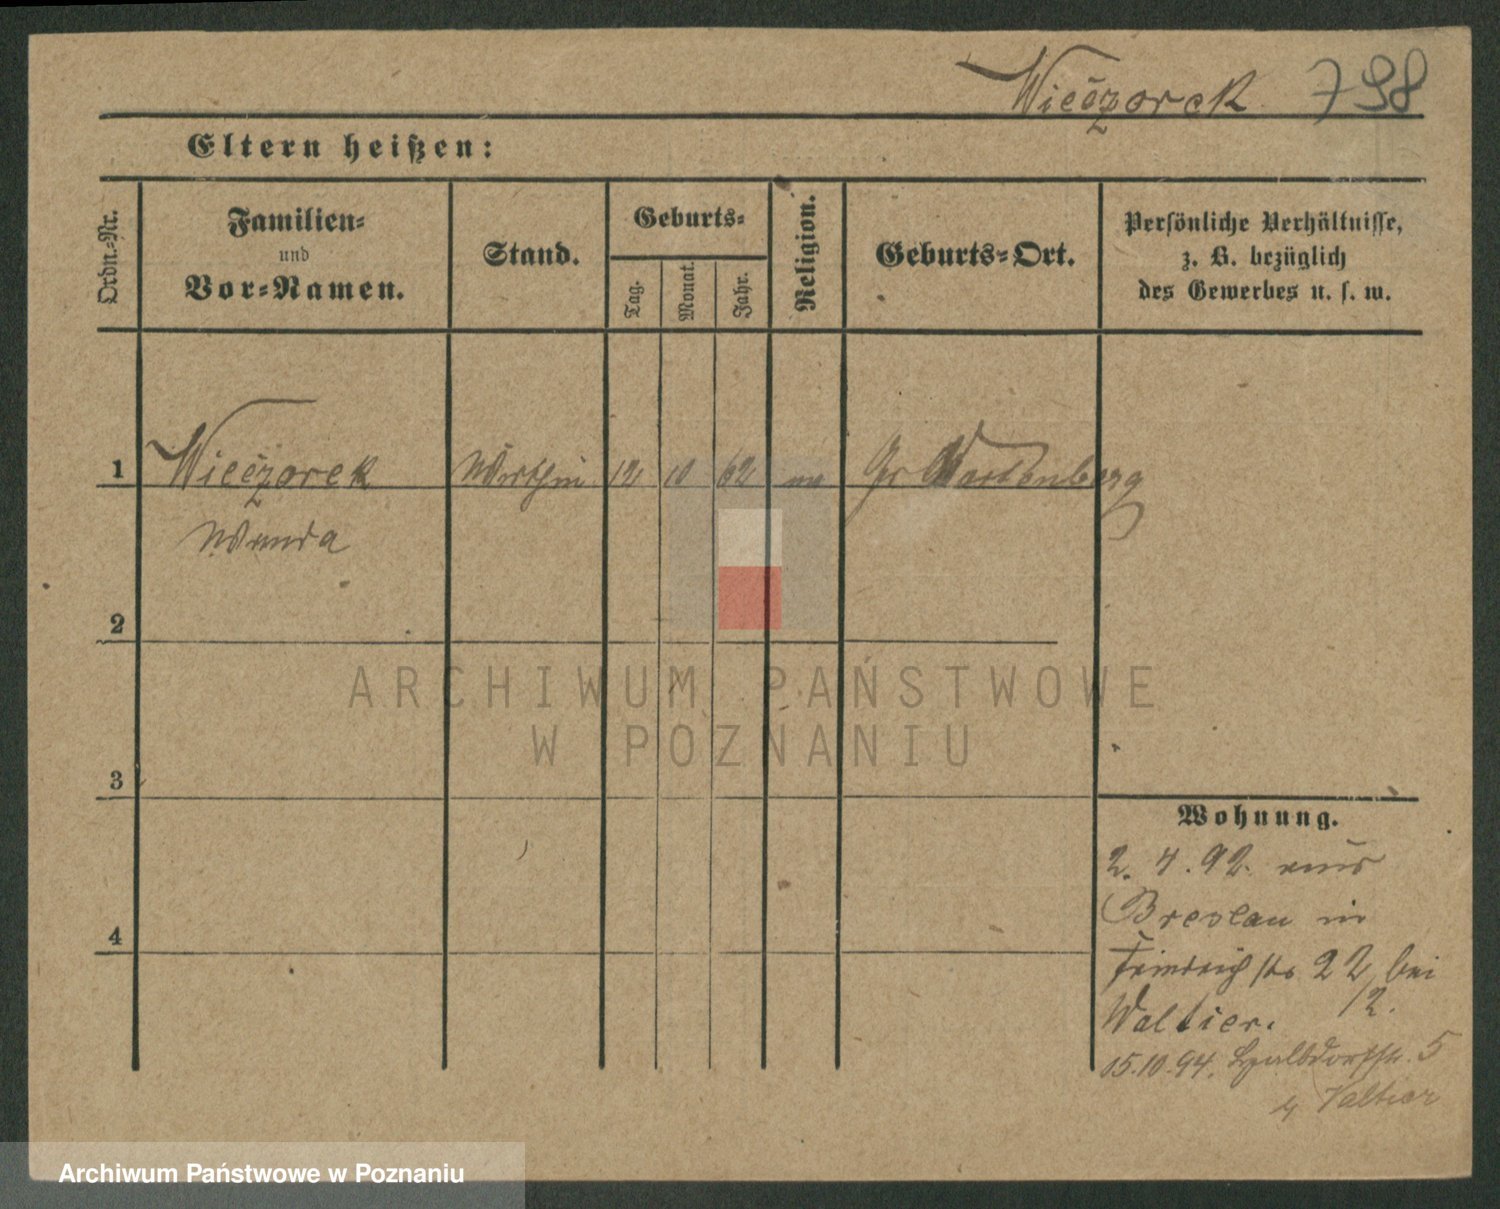 Wieczorek 798
Eltern heißen:
Ordn.-Nr.
Familien-
und
Vor-Namen.
Stand.
Geburts-
Tag.
Monat.
Jahr.
Religion.
Geburts-Ort.
Persönliche Verhältnisse,
z. B. bezüglich
des Gewerbes u. s. w.
1 Wieczorek Wirthin 12 10 62 Gr Wartenberg
Wanda
2
3
4
ARCHIWUM PAŃSTWOWE
W POZNANIU
Wohnung.
2. 4. 92. aus
Breslau in
Friedrichstr 22 bei
Waltier. 12.
15.10.94. Halbdorfstr. 5
Valtier
Archiwum Państwowe w Poznaniu